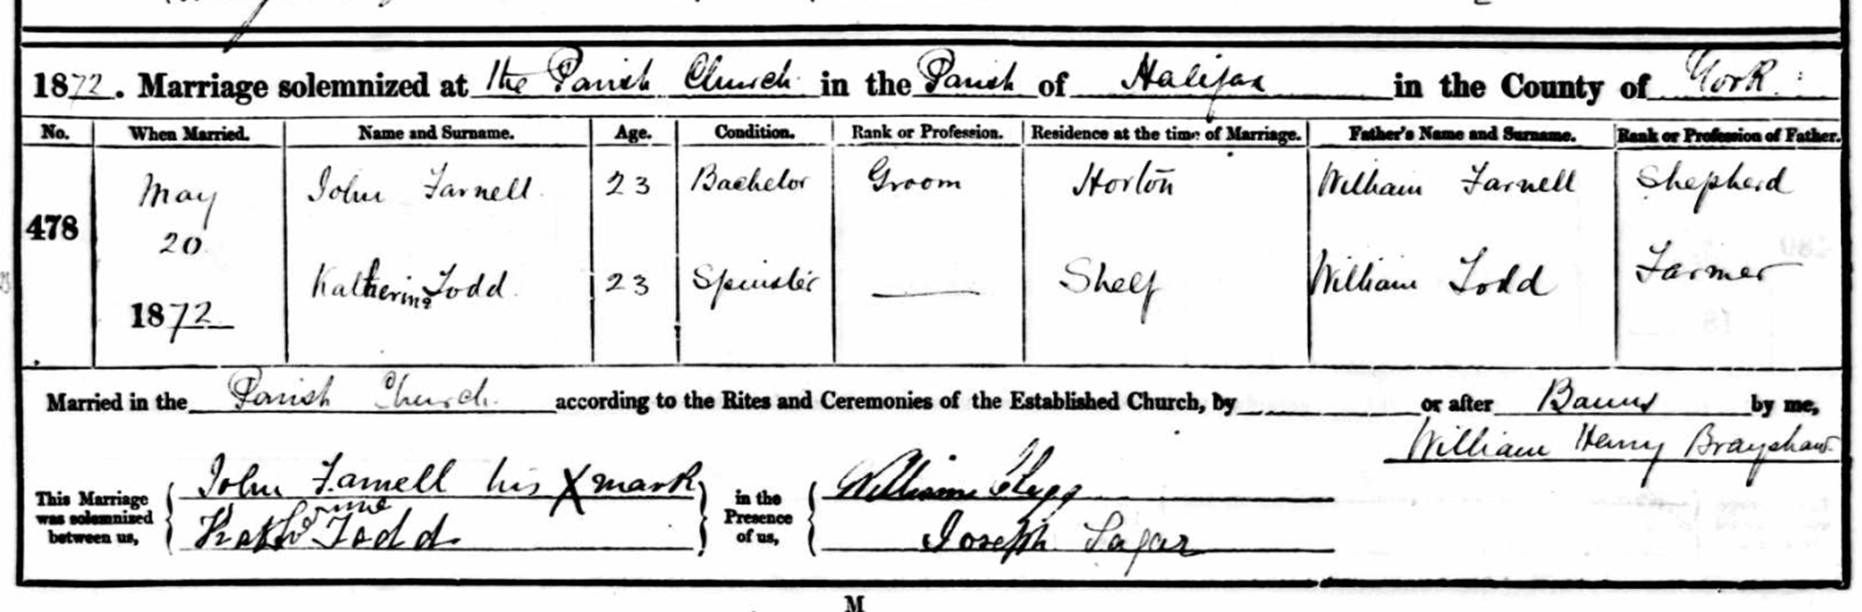 1872. Marriage solemnized at the Parish Church in the Parish of Halifax in the County of York.
No. When Married. Name and Surname. Age. Condition. Rank or Profession. Residence at the time of Marriage. Father's Name and Surname. Rank or Profession of Father.
478 May 20 1872 John Farnell 23 Bachelor Groom Horton William Farnell Shepherd
Katherine Todd 23 Spinster — Shelf William Todd Farmer
Married in the Parish Church according to the Rites and Ceremonies of the Established Church, by or after Banns by me,
William Henry Brayshaw
This Marriage was solemnized between us, John Farnell his X mark
Katherine Todd
in the Presence of us, William Clegg
Joseph Sagar
M